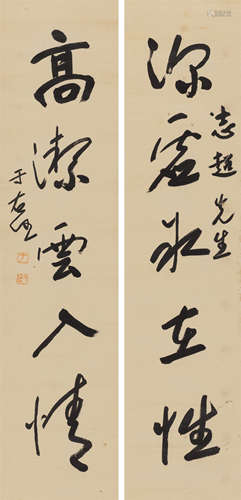 深虛水在性
志超先生
高潔雲入情
于右任